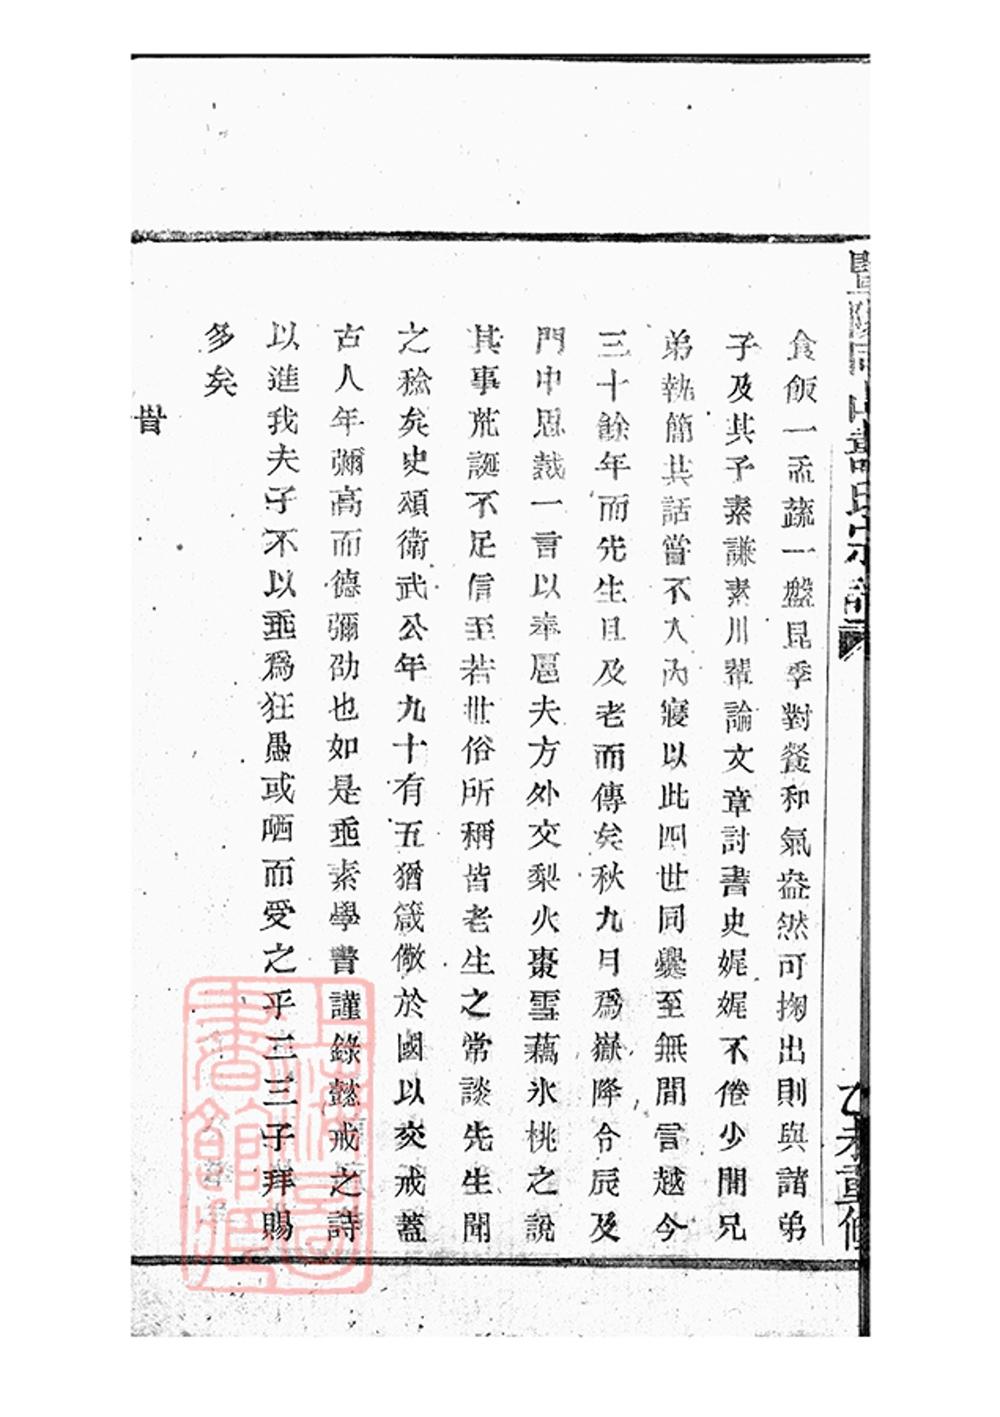 暨陽同山壽氏宗譜
乙未重修
食飯一盂蔬一盤昆季對餐和氣盎然可掬出則與諸弟
子及其子素謙素川輩論文章討書史娓娓不倦少閒兄
弟執簡共話嘗不入內寢以此四世同爨至無間言越今
三十餘年而先生且及老而傳矣秋九月為嶽降令辰及
門中思裁一言以奉扈夫方外交梨火棗雪藕氷桃之說
其事荒誕不足信至若世俗所稱皆老生之常談先生聞
之稔矣史頌衛武公年九十有五猶箴儆於國以交戒蓋
古人年彌高而德彌劭也如是乖素學書謹錄懿戒之詩
以進我夫子不以乖為狂愚或哂而受之乎二三子拜賜
多矣
昔
上海圖書館藏